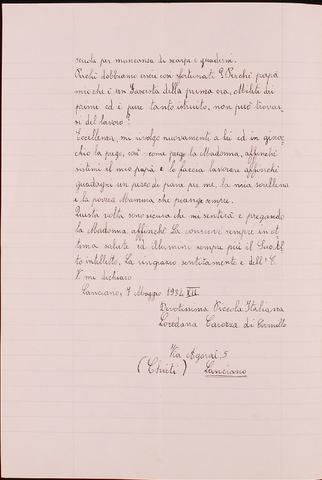 scuola per mancanza di scarpe e quaderni.
Perché dobbiamo essere così sfortunati? Perché papà
mio che è un Fascista della prima ora, Mutilato dei
primi ed è pure tanto istruito, non può trovar-
si del lavoro?
Eccellenza, mi rivolgo nuovamente a lei ed in ginoc-
chio la prego, così come prego la Madonna, affinché
sistemi il mio papà e lo faccia lavorare affinché
guadagni un pezzo di pane per me, la mia sorellina
e la povera Mamma che piange sempre.
Questa volta sono sicura che mi sentirà e pregando
la Madonna affinché La conservi sempre in ot
tima salute ed Illumini sempre più il Suo Al
to intelletto. La ringrazio sentitamente e dell' E.
V. mi dichiaro
Lanciano, 7 Maggio 1934 XII
Devotissima Piccola Italiana
Loredana Carozza di Camillo
Via Agorai, 5
(Chieti) Lanciano